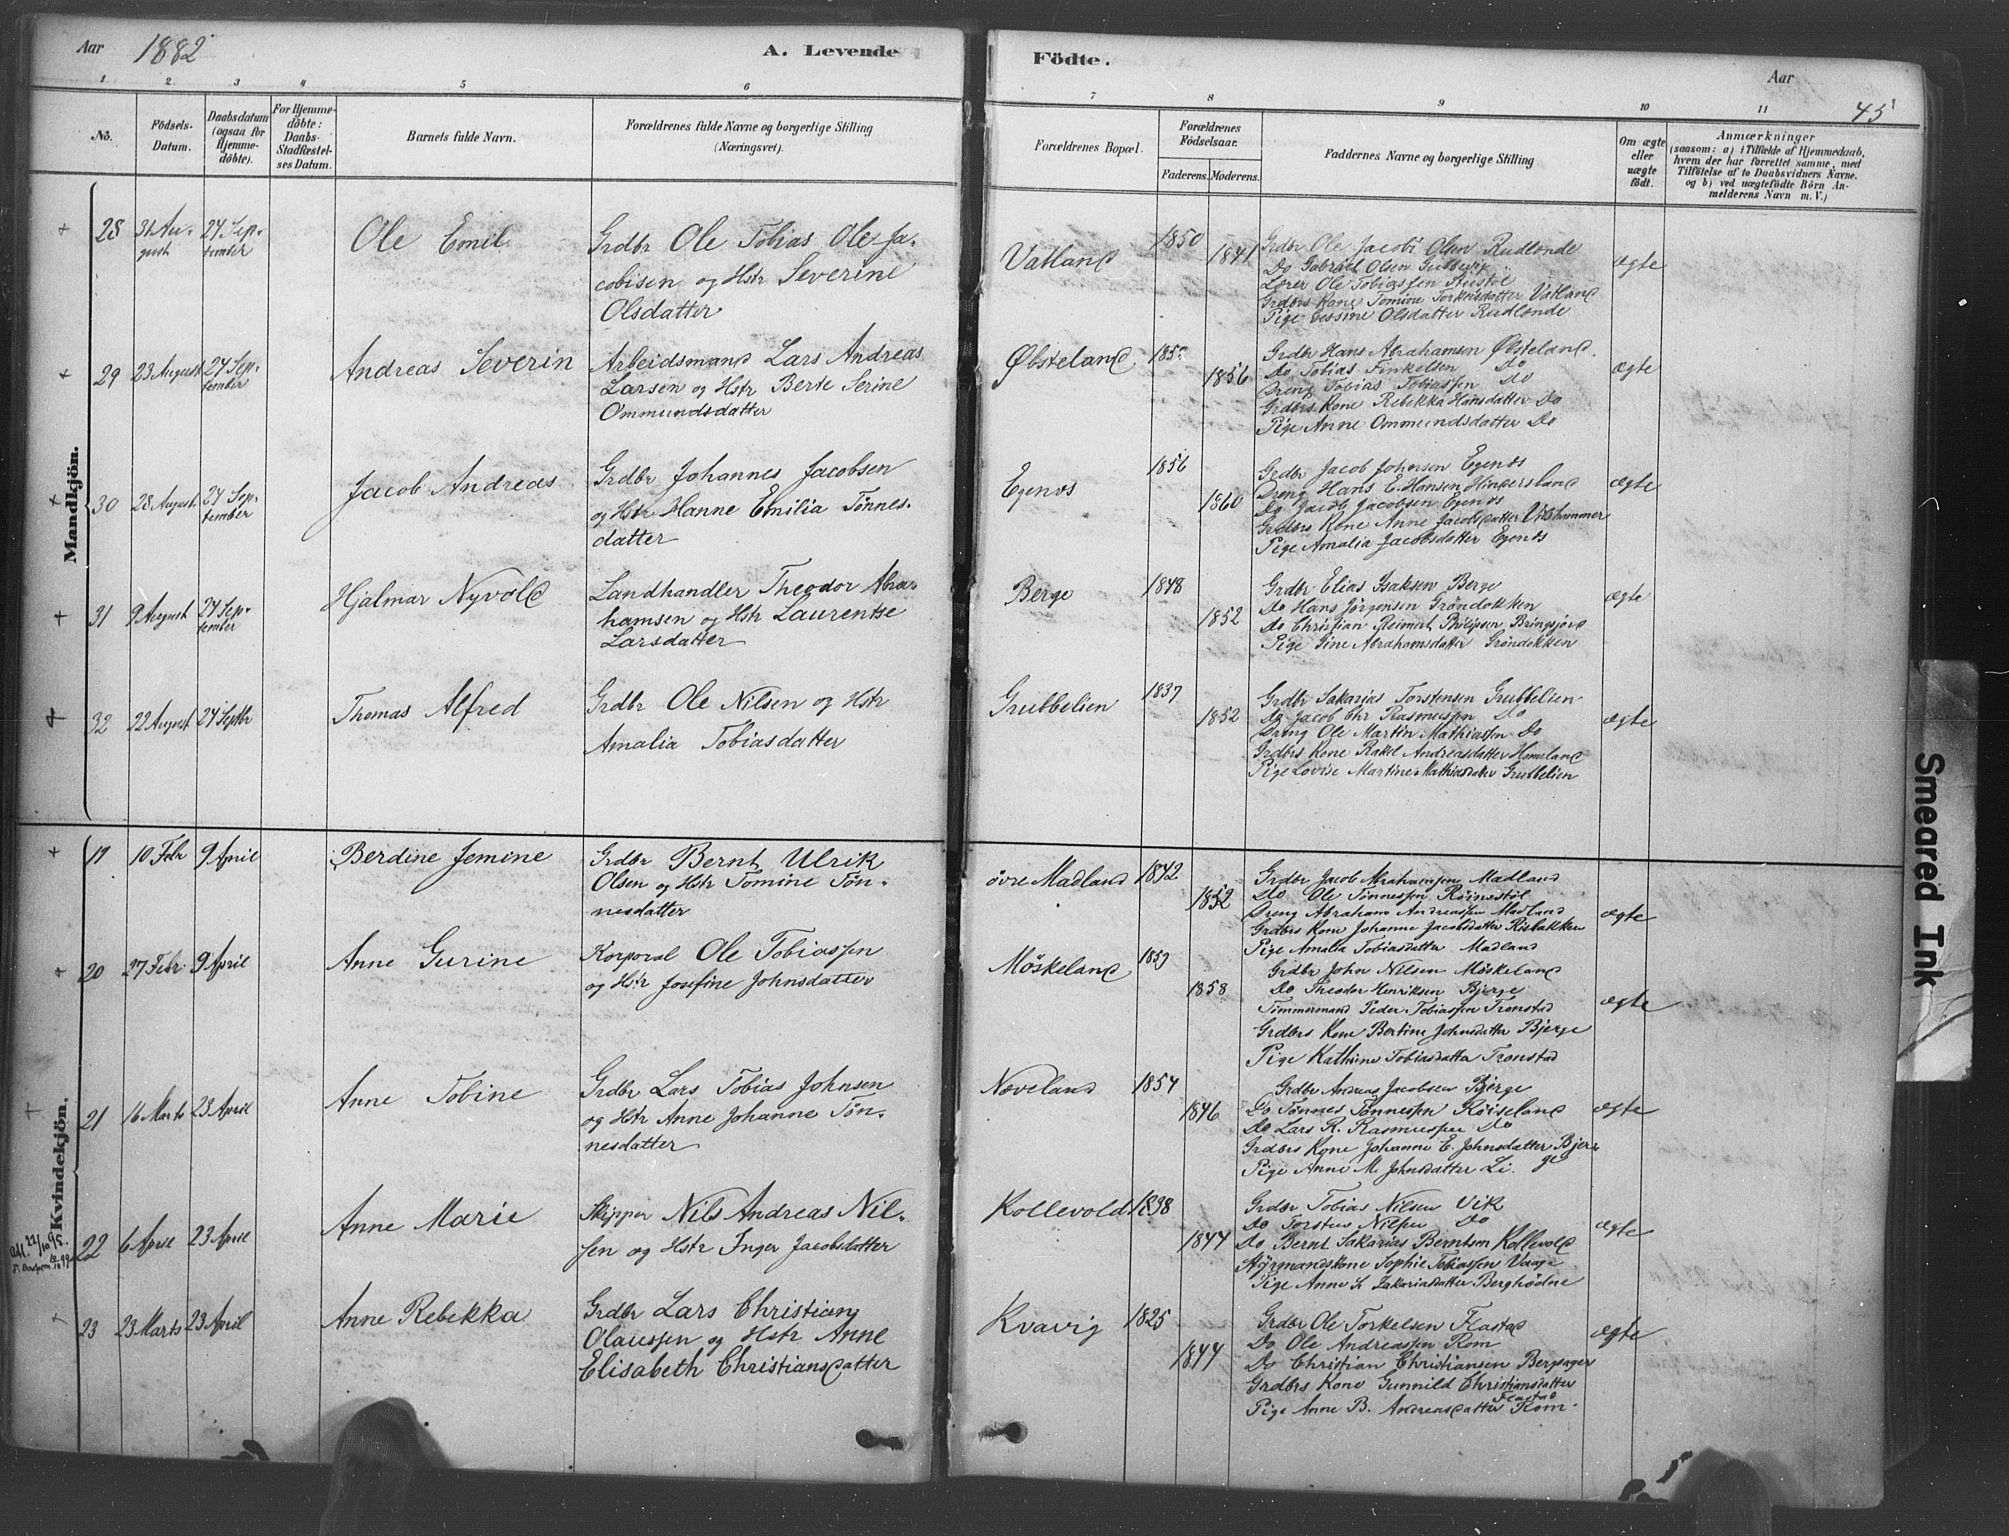 Aar 1882
A. Levende Födte.
Aar
45
1 2 3 4 5 6 7 8 9 10 11
No.
Födsels-Datum.
Daabsdatum (ogsaa for Hjemmedöbte).
For Hjemmedöbte: Daabs-Stadfæstelses Datum.
Barnets fulde Navn.
Forældrenes fulde Navne og borgerlige Stilling (Næringsvei).
Forældrenes Bopæl.
Forældrenes Födselsaar.
Faderens. Moderens.
Faddernes Navne og borgerlige Stilling
Om ægte eller uægte födt.
Anmærkninger
(saasom: a) i Tilfælde af Hjemmedaab,
hvem der har forrettet samme, med
Tilföielse af to Daabsvidners Navne.
og b) ved uægtefödte Börn An-
melderens Navn m. V.)
Mandkjön.
28 31 Au-gust 24 Sep-tember
Ole Emil
Grdbr Ole Tobias Ole Ja-
cobisen og Hstr Severine
Olsdatter
Vatland 1850 1841
Grdbr Ole Jacobi Olsen Rudlende
Do Gabriel Olsen
Lærer Ole Tobiassen
Grdbrs Kone Tomine Torkelsdatter Vatland
Pige Gessine Olsdatter Rudlende
ægte
29 23 August 24 Sep-tember
Andreas Severin
Arbeidsmand Lars Andreas
Larsen og Hstr Berte Serine
Ommundsdatter
Øbsteland 1856
Grdbr Hans Abrahamsen Øbsteland.
Do Tobias Finkelsen Do
Dreng Tobias Tobiassen Do
Grdbrs Kone Rebekka Hansdatter Do
Pige Anne Ommundsdatter Do
ægte
30 28 August 24 Sep-tember
Jacob Andreas
Grdbr Johannes Jacobsen
og Hstr Hanne Emilia Tønnes-
datter
Egenes 1856 1860
Grdbr Jacob Johnsen Egenes
Dreng Hans E. Hansen
Do Jacob Jacobsen Egenes
Grdbrs Kone Anne Jacobsdatter
Pige Amalia Jacobsdatter Egenes
ægte
31 9 August 24 Sep-tember
Hjalmar Nyvold
Landhandler Theodor Abra-
hamsen og Hstr Laurentse
Larsdatter
Berge 1848 1852
Grdbr Elias Isaksen Berge
Do Hans Jørgensen Grøndokken
Do Christian Reinert Philipsen Bringsjord
Pige Gine Abrahamsdatter Grøndokken
ægte
32 22 August 24 Septbr
Thomas Alfred
Grdbr Ole Nilsen og Hstr
Amalia Tobiasdatter
Grubbelien 1837 1852
Grdbr Sakarias Torstensen Grubbelien
Do Jacob Chr Rasmussen Do
Dreng Ole Martin Mathiassen Do
Grdbrs Kone Rakel Andreasdatter Homeland
Pige Lovise Martine Mathiasdatter Grubbelien
ægte
Kvindekjön.
19 10 Febr 9 April
Berdine Jemine
Grdbr Bernt Ulrik
Olsen og Hstr Tomine Tøn-
nesdatter
øvre Madland 1842 1852
Grdbr Jacob Abrahamsen Madland
Do Ole Tønnessen Røinestøl
Dreng Abraham Andreassen Madland
Grdbrs Kone Johanne Jacobsdatter Risbakken
Pige Amalia Tobiasdatter Madland
ægte
20 27 Febr 9 April
Anne Gurine
Korporal Ole Tobiassen
og Hstr Josefine Johnsdatter
Møskeland 1859 1858
Grdbr John Nilsen Møskeland
Do Theodor Henriksen Bjerge
Tømmermand Peder Tobiassen Tronstad
Grdbrs Kone Bertine Johnsdatter Bjerge
Pige Kathrine Tobiasdatter Tronstad
ægte
21 16 Marts 23 April
Anne Tobine
Grdbr Lars Tobias Johnsen
og Hstr Anne Johanne Tøn-
nesdatter
Næveland 1854 1846
Grdbr Andreas Jacobsen Bjerge
Do Tønnes Tønnessen Røiseland
Do Lars R. Rasmussen Do
Grdbrs Kone Johanne E. Johnsdatter Bjer-
ge
Pige Anne M. Johnsdatter Li.
ægte
22 6 April 23 April
Anne Marie
Skipper Nils Andreas Nil-
sen og Hstr Inger Jacobsdatter
Kollevold 1838 1844
Grdbr Tobias Nilsen Vik
Do Torsten Nilsen Do
Do Bernt Sakarias Berntsen Kollevold
Styrmandskone Sophie Tobiassen Vaage
Pige Anne L. Zakariasdatter Berghødne
ægte
23 23 Marts 23 April
Anne Rebekka
Grdbr Lars Christian
Olaussen og Hstr Anne
Elisabeth Christiansdatter
Kvavig 1825 1844
Grdbr Ole Torkelsen Flastad
Do Ole Andreassen Rom
Do Christian Christiansen Bergsager
Grdbrs Kone Gunnild Christiansdatter
Flastad
Pige Anne B. Andreasdatter Rom.
ægte
Smeared Ink